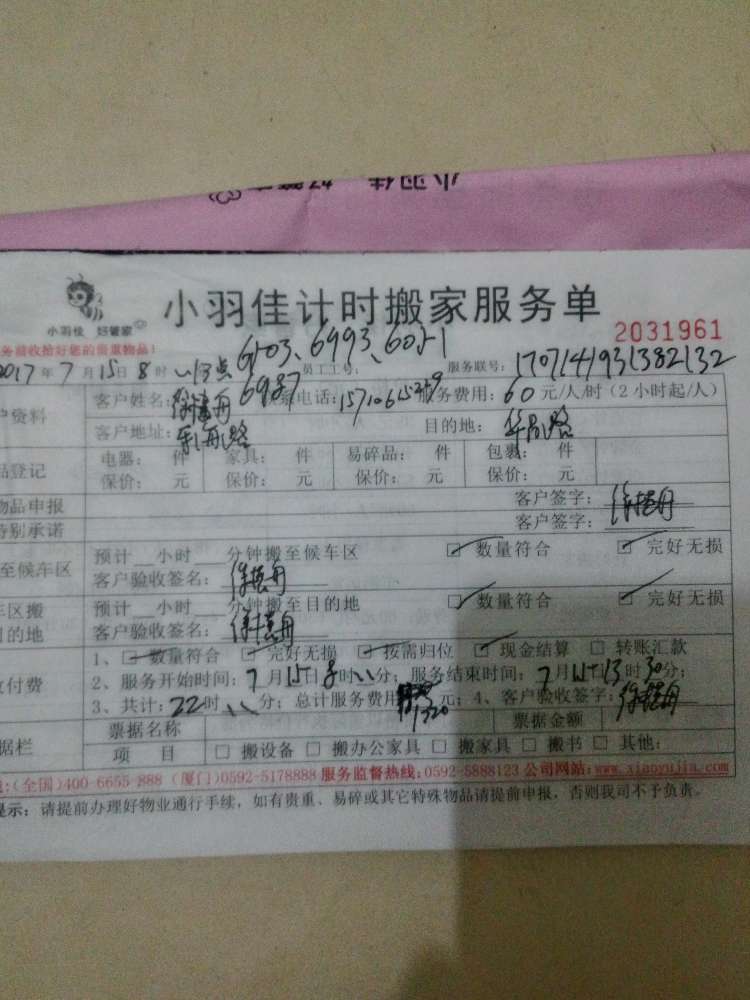 小羽佳 好管家
小羽佳计时搬家服务单
2031961
务前收拾好您的贵重物品!
6103、6993、6051
2017年7月15日8时 员工工号: 6987 服务联号: 1707141931382132
客户姓名: 联系电话: 服务费用: 60元/人/时(2小时起/人)
户资料
客户地址: 目的地:
品登记
电器: 件 家具: 件 易碎品: 件 包裹: 件
保价: 元 保价: 元 保价: 元 保价: 元
物品申报 客户签字:
特别承诺 客户签字:
至候车区
预计 小时 分钟搬至候车区 ☑ 数量符合 ☑ 完好无损
客户验收签名:
车区搬
目的地
预计 小时 分钟搬至目的地 ☑ 数量符合 ☑ 完好无损
客户验收签名:
1、☑ 数量符合 ☑ 完好无损 ☑ 按需归位 ☑ 现金结算 ☐ 转账汇款
付费
2、服务开始时间: 7月15日8时 分; 服务结束时间: 7月15日13时30分;
3、共计: 22时 分; 总计服务费用 1320 元; 4、客户验收签字:
据栏
票据名称 票据金额
项 目 ☐ 搬设备 ☐ 搬办公家具 ☐ 搬家具 ☐ 搬书 ☐ 其他:
(全国)400-6655-888 (厦门)0592-5178888 服务监督热线:0592-5888123 公司网站:www.xiaoyujia.com
提示: 请提前办理好物业通行手续, 如有贵重、易碎或其它特殊物品请提前申报, 否则我司不予负责。